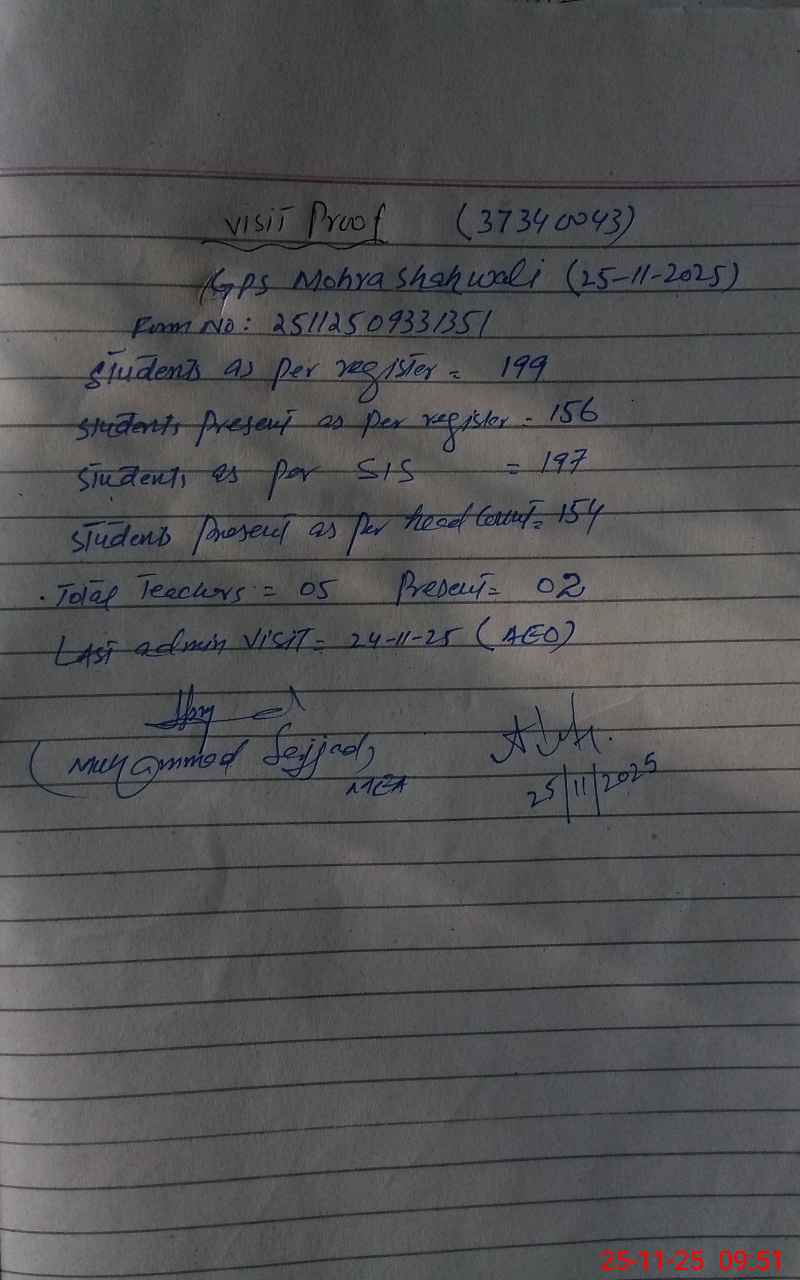 Visit Proof (37340043)
GPS Mohra Shahwali (25-11-2025)
Form No: 25112509331351
Students as per register = 199
Students Present as per register = 156
Students as per SIS = 197
Students Present as per head Count = 154
. Total Teachers = 05 Present = 02
Last admin Visit = 24-11-25 (AEO)
(Muhammad Sajjad)
MEA
25/11/2025
25-11-25 09:51